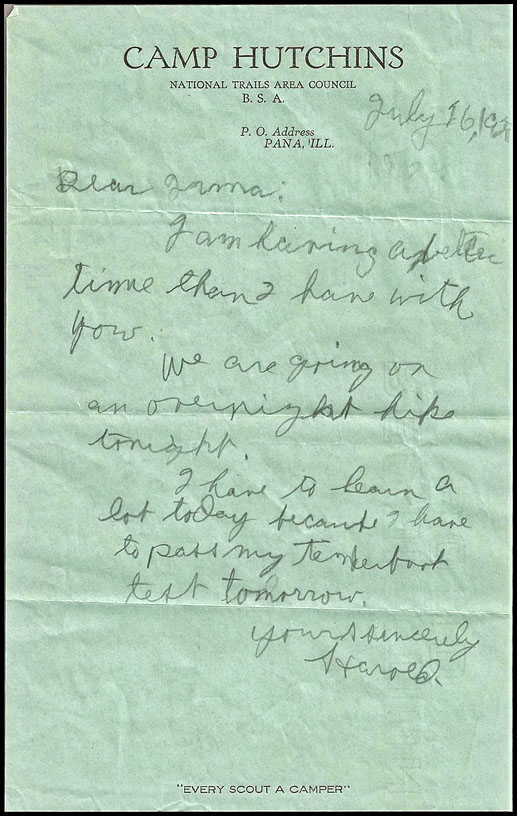 CAMP HUTCHINS
NATIONAL TRAILS AREA COUNCIL
B. S. A.
P. O. Address
PANA, ILL.
July 16, 192
Dear
I am having a better
time than I have with
you.
We are going on
an overnight hike
tonight.
I have to learn a
lot today because I have
to pass my Tenderfoot
test tomorrow.
Yours sincerely
Harold.
"EVERY SCOUT A CAMPER"